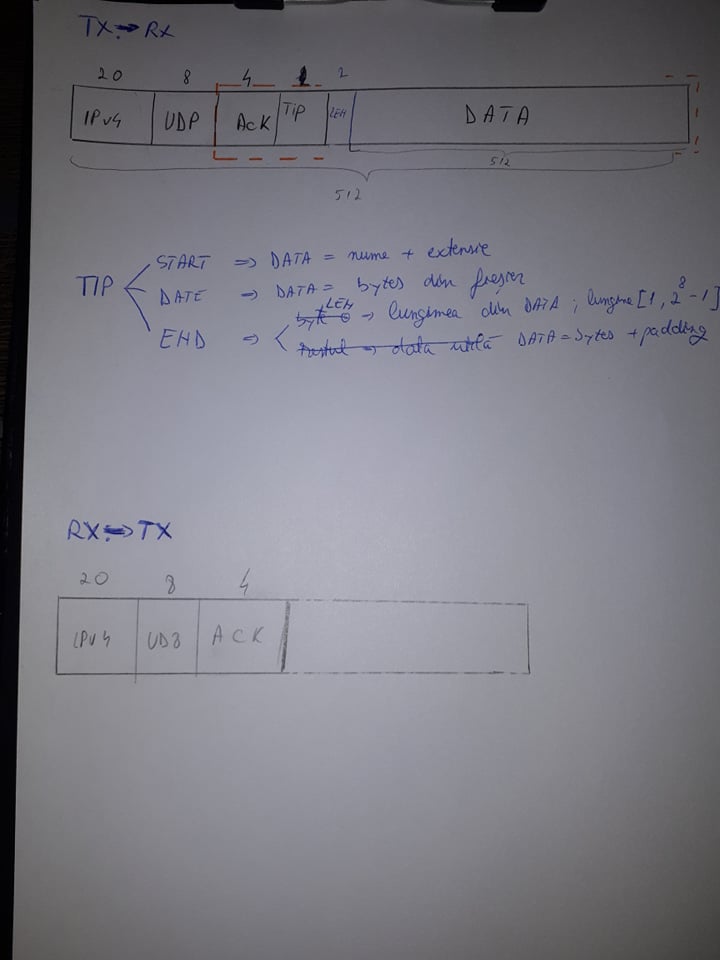 TX => RX
20 8 4 1 2
IPv4 UDP ACK TIP LEN DATA
512
512
START => DATA = nume + extensie
TIP DATE => DATA = bytes din fișier
LEN
END => byte 0 -> lungimea din DATA ; lungime [1, 2^8 - 1]
restul => data utilă DATA = bytes + padding
RX => TX
20 8 4
IPv4 UD8 ACK